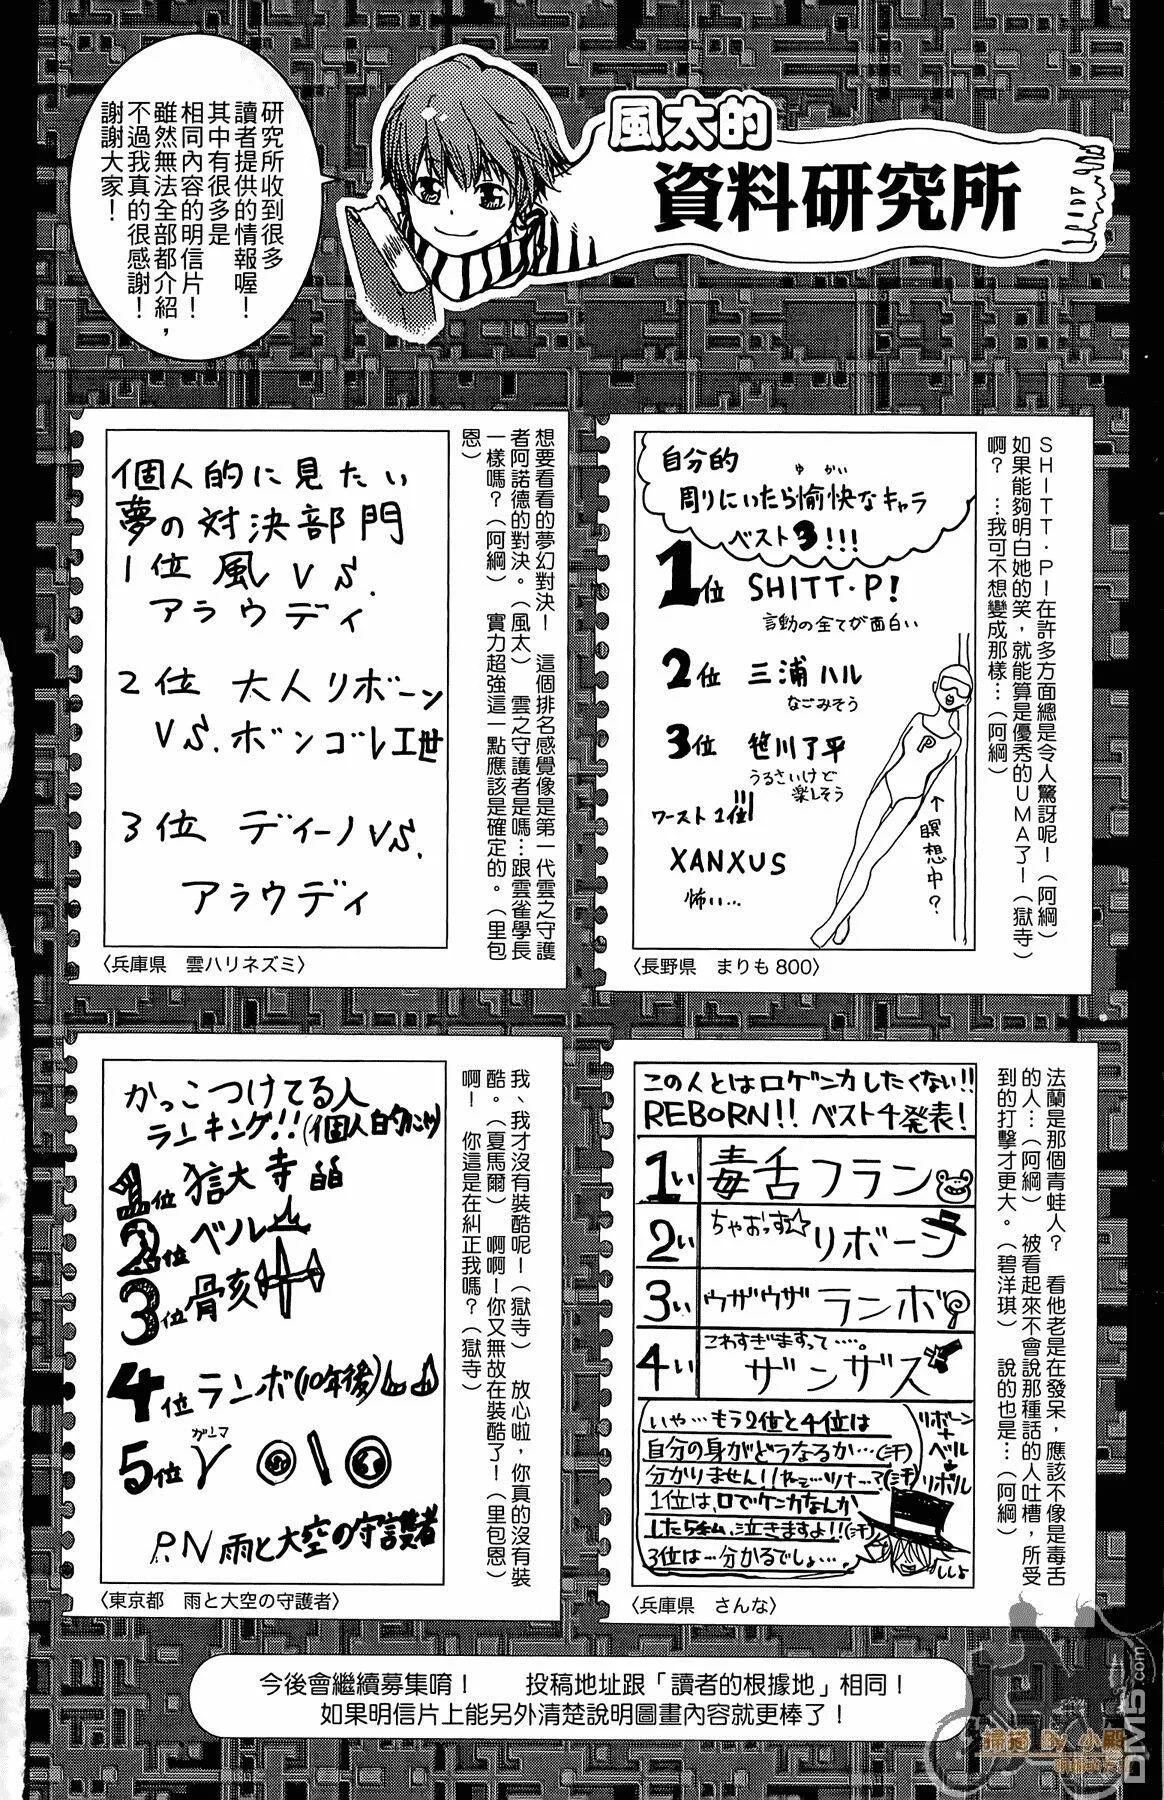 風太的
資料研究所
研究所收到很多
讀者提供的情報喔！
其中有很多是
相同內容的明信片！
雖然無法全部都介紹，
不過我真的很感謝！
謝謝大家！
SHITT·P！在許多方面總是令人驚訝呢！（阿綱）
如果能夠明白她的笑，就能算是優秀的UMA了！（獄寺）
啊？…我可不想變成那樣…（阿綱）
自分的
周りにいたら愉快なキャラ
ゆ かい
ベスト3!!!
1位 SHITT·P!
言動の全てが面白い
2位 三浦ハル
なごみそう
3位 笹川了平
うるさいけど
楽しそう
ワースト1位!!!
XANXUS
怖い…
P
↑瞑想中?
〈長野県 まりも800〉
想要看看的夢幻對決！ 這個排名感覺像是第一代雲之守護
者阿諾德的對決。（風太） 雲之守護者是嗎…跟雲雀學長
一樣嗎？（阿綱） 實力超強這一點應該是確定的。（里包
恩）
個人的に見たい
夢の対決部門
1位 風 VS.
アラウディ
2位 大人リボーン
VS.ボンゴレI世
3位 ディーノVS.
アラウディ
〈兵庫県 雲ハリネズミ〉
法蘭是那個青蛙人？ 看他老是在發呆，應該不像是毒舌
的人…（阿綱） 被看起來不會說那種話的人吐槽，所受
到的打擊才更大。（碧洋琪） 說的也是…（阿綱）
この人とは口ゲンカしたくない!!
REBORN!! ベスト4発表!
1い 毒舌フラン
2い ちゃおっす☆ リボーン
3い ウザウザ ランボ
4い こわすぎますって…。 ザンザス
いや…もう2位と4位は
自分の身がどうなるか…(汗)
分かりません!!ねぇ…ツナ…?(汗)
1位は、口でケンカなんか
した5私、泣きますよ!!(汗)
3位は…分かるでしょ…。
リボーン
+
ベル
↓
リボル
ししょ
〈兵庫県 さんな〉
我、我才沒有裝酷呢！（獄寺） 放心啦，你真的沒有裝
酷。（夏馬爾） 啊啊！你又無故在裝酷了！（里包恩）
啊！ 你這是在糾正我嗎？（獄寺）
かっこつけてる人
ランキング!!(個人的に)
1位 獄寺
2位 ベル
3位 骸
4位 ランボ(10年後)
5位 γ
ガンマ
P.N 雨と大空の守護者
〈東京都 雨と大空の守護者〉
今後會繼續募集唷！ 投稿地址跟「讀者的根據地」相同！
如果明信片上能另外清楚說明圖畫內容就更棒了！
掃描 By 小殿
DM5.com